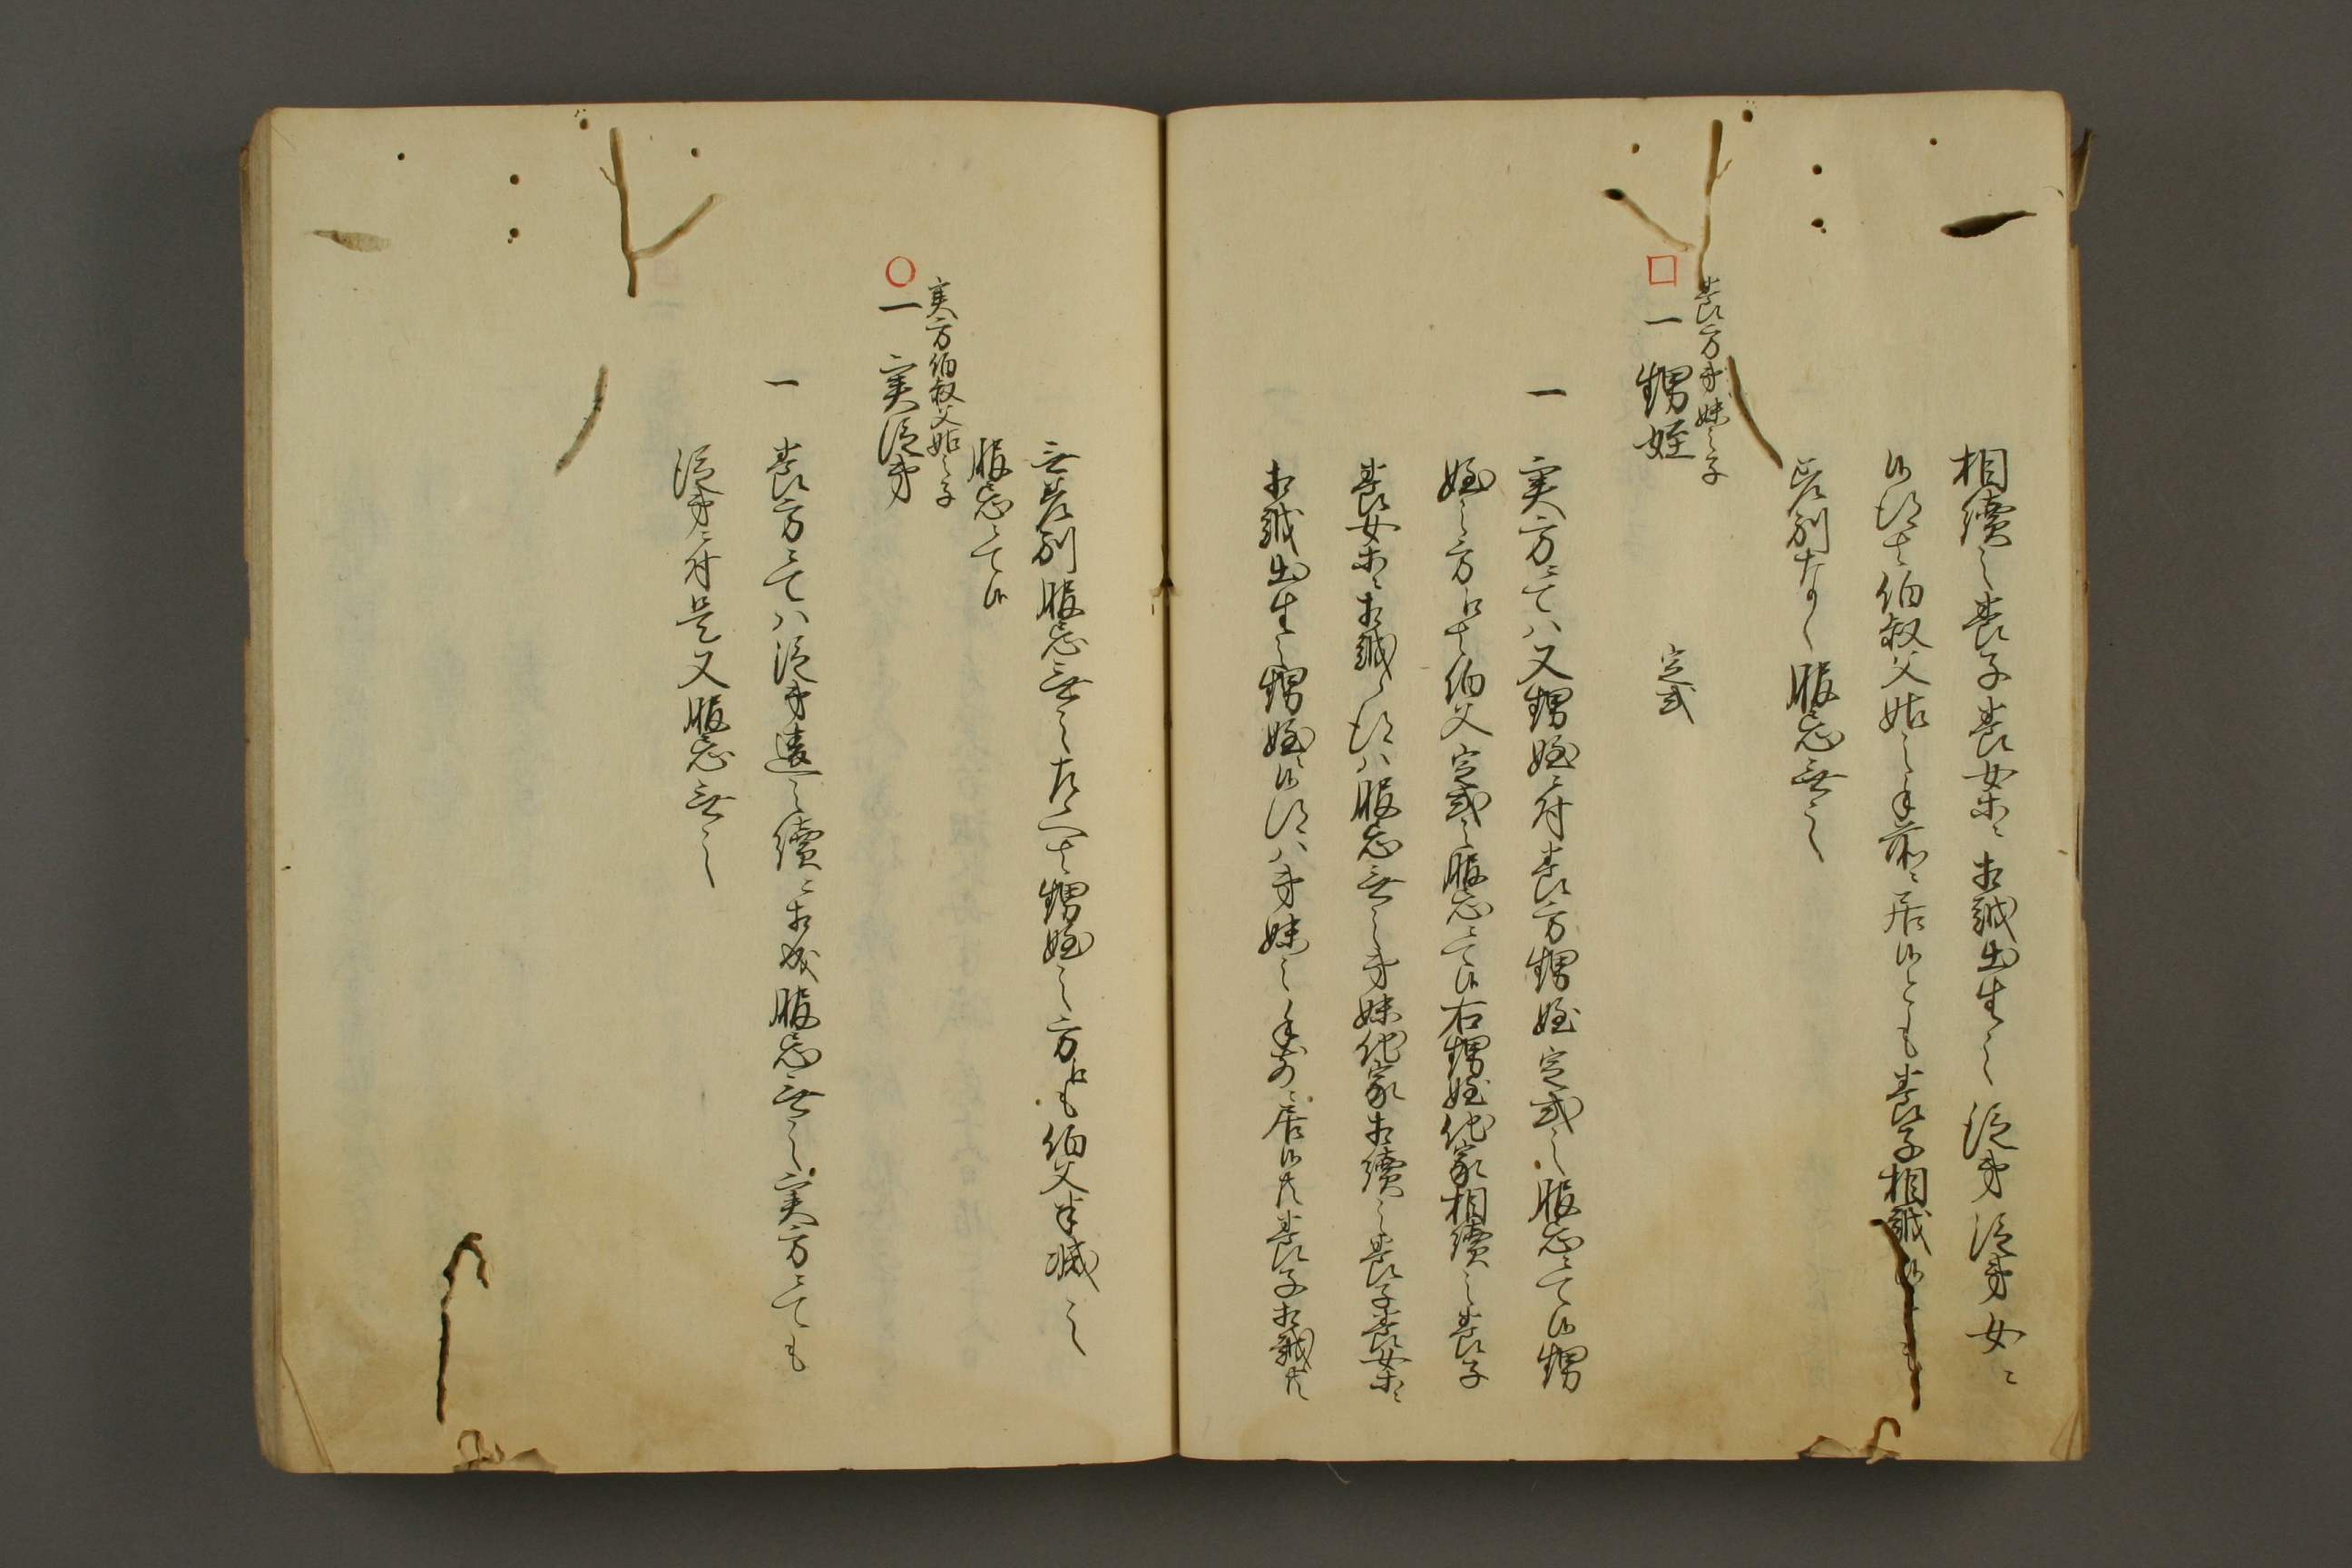 相續之養子養女ニ相越出生之従弟従弟女ニ
候得は伯叔父姑之手前ニ居候とも養子相越候とも
差別なく服忌無之
養方弟妹之子
□一甥姪　定式
一実方ニてハ又甥姪ニ付養方甥姪定式之服忌ニて候甥
姪之方よは伯父定式之服忌ニて候右甥姪他家相續之養子
養女ニ相越候得ハ服忌無之弟妹他家相續之養子養女ニ
相越出生之甥姪ニ候得ハ弟妹之手前ニ居候共養子相越共
無差別服忌無之尤は甥姪之方よも伯父半減之
服忌ニて候
実方伯叔父姑之子
○一実従弟
一養方ニてハ従弟違之續ニ相成服忌無之実方ニても
従弟ニ付是又服忌無之